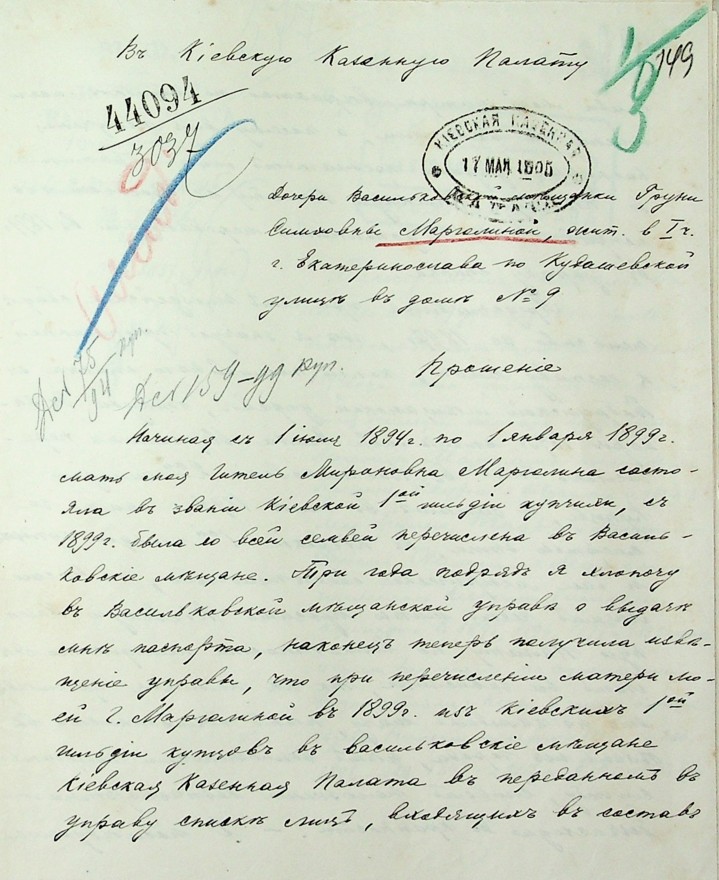 149
1/3
Въ Кіевскую Казенную Палату
44094
3037
КІЕВСКАЯ КАЗЕННАЯ
17 МАЯ 1905
ПАЛАТА
Дочери Васильковской мѣщанки Груни
Симховны Марголиной, жит. в I ч.
г. Екатеринослава по Кудашевской
улицѣ въ домѣ № 9
Дел 75/94 куп.
Дел 159-99 куп.
Прошеніе
Начиная съ 1 іюля 1894 г. по 1 января 1899 г.
мать моя Гитель Мироновна Марголина состо-
яла въ званіи Кіевской 1ой гильдіи купчихи, съ
1899 г. была со всей семьей перечислена въ Василь-
ковскіе мѣщане. Три года подрядъ я хлопочу
въ Васильковской мѣщанской управѣ о выдачѣ
мнѣ паспорта, наконецъ теперь получила извѣ-
щеніе управы, что при перечисленіи матери мо-
ей Г. Марголиной въ 1899 г. изъ Кіевскихъ 1ой
гильдіи купцовъ въ васильковскіе мѣщане
Кіевская Казенная Палата въ переданномъ въ
управу спискѣ лицъ, входящихъ въ составъ